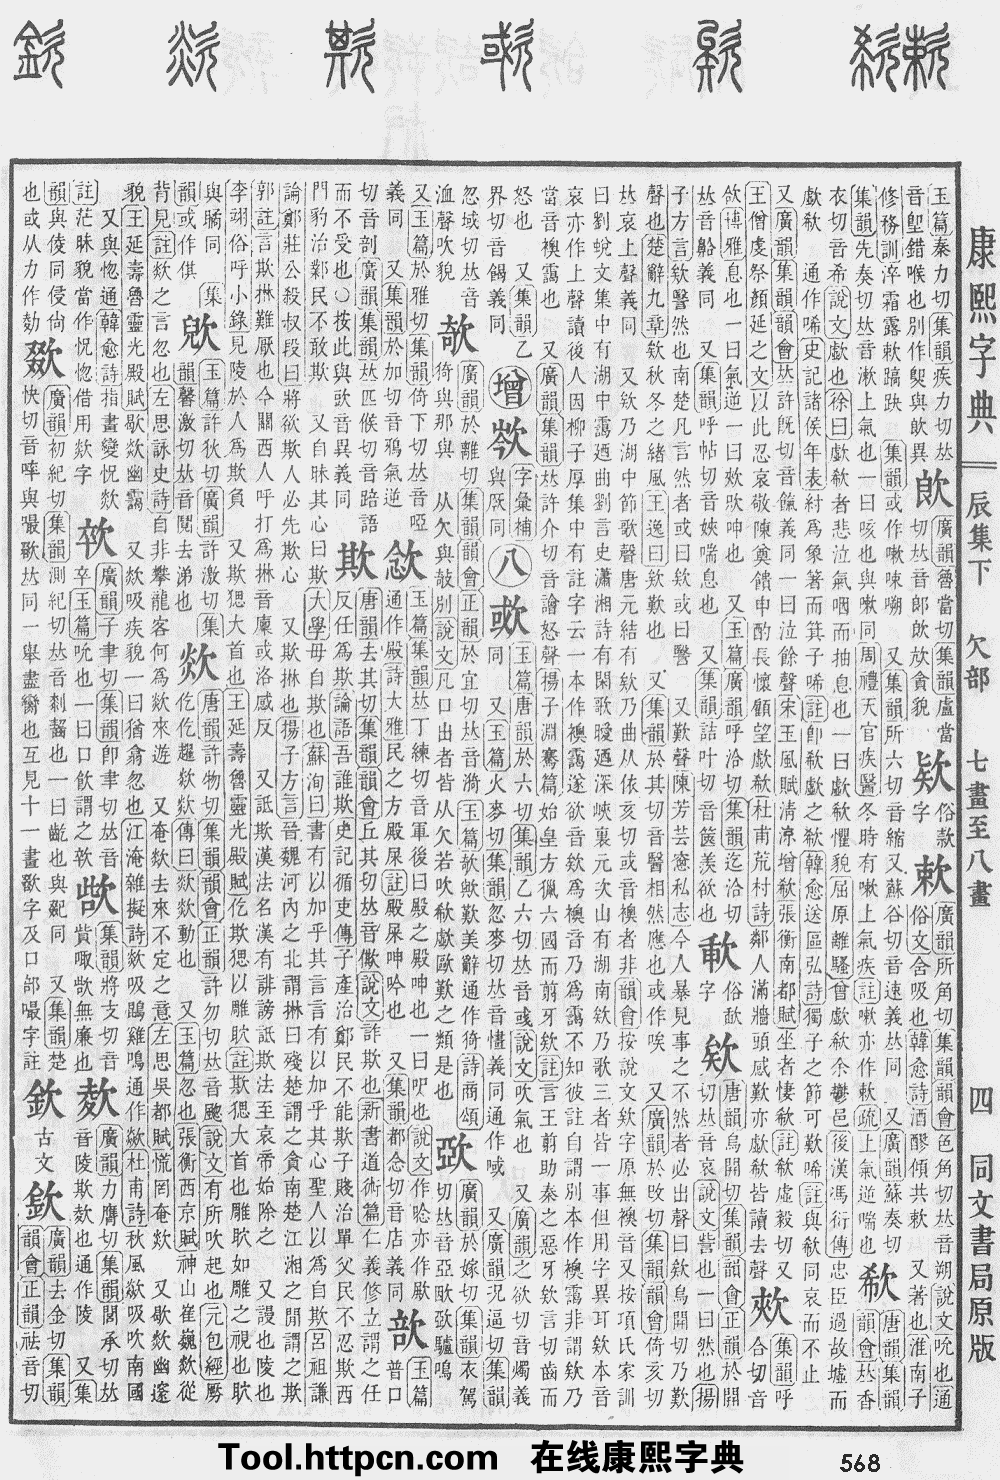 康熙字典
辰集下
欠部
七畫至八畫
四
同文書局原版
玉篇秦力切集韻疾力切𠀤
音堲錯喉也別作㰟與㰸異
欴
廣韻魯當切集韻盧當
切𠀤音郞欴㰠貪貌
欵
俗款
字
欶
廣韻所角切集韻韻會色角切𠀤音朔說文吮也通
俗文含吸也韓愈詩酒醪傾共欶 又著也淮南子
修務訓淬霜露欶蹻趹
集韻或作嗽㖼嗍 又集韻所六切音縮 又蘇谷切音速義𠀤同 又廣韻蘇奏切
集韻先奏切𠀤音漱上氣也一曰咳也與嗽同周禮天官疾醫冬時有嗽上氣疾註嗽亦作欶疏上氣逆喘也
欷
唐韻集韻
韻會𠀤香
衣切音希說文歔也徐曰歔欷者悲泣氣咽而抽息也一曰歔欷懼貌屈原離騷曾歔欷余鬱邑後漢馮衍傳忠臣過故墟而
歔欷 通作唏史記諸侯年表紂爲象箸而箕子唏註卽欷歔之欷韓愈送區弘詩獨子之節可歎唏註與欷同哀而不止
又廣韻集韻韻會𠀤許旣切音餼義同一曰泣餘聲宋玉風賦淸凉增欷張衡南都賦坐者悽欷註欷虛毅切
王僧虔祭顏延之文以此忍哀敬陳奠饋申酌長懷顧望歔欷杜甫荒村詩鄰人滿牆頭感歎亦歔欷皆讀去聲
㰰
集韻呼
合切音
欱博雅息也一曰氣逆一曰欬欱呷也 又玉篇廣韻呼洽切集韻迄洽切
𠀤音䶎義同 又集韻呼帖切音㛍喘息也 又集韻詰叶切音篋羨欲也
俗歃
字
欸
唐韻烏開切集韻韻會正韻於開
切𠀤音哀說文訾也一曰然也揚
子方言欸譍然也南楚凡言然者或曰欸或曰譍 又歎聲陳芳芸窻私志今人暴見事之不然者必出聲曰欸烏開切乃歎
聲也楚辭九章欸秋冬之緒風王逸曰欸歎也 又集韻於其切音醫相然應也或作唉 又廣韻於改切集韻韻會倚亥切
𠀤哀上聲義同 又欸乃湖中節歌聲唐元結有欸乃曲从依亥切或音襖者非韻會按說文欸字原無襖音又按項氏家訓
曰劉蛻文集中有湖中靄迺曲劉言史瀟湘詩有閑歌曖迺深峽裏元次山有湖南欸乃歌三者皆一事但用字異耳欸本音
哀亦作上聲讀後人因柳子厚集中有註字云一本作襖靄遂欲音欸爲襖音乃爲靄不知彼註自謂別本作襖靄非謂欸乃
當音襖靄也 又廣韻集韻𠀤許介切音譮怒聲揚子淵騫篇始皇方獵六國而翦牙欸註言王翦助秦之惡牙欸言切齒而
怒也 又集韻乙
界切音餲義同
增
字彙補
與厥同
八
㰲
玉篇唐韻於六切集韻乙六切𠀤音彧說文吹氣也 又廣韻之欲切音燭義
同 又玉篇火麥切集韻忽麥切𠀤音㦎義同通作㖪 又廣韻況逼切集韻
忽域切𠀤音
洫聲吹貌
欹
廣韻於離切集韻韻會正韻於宜切𠀤音漪玉篇欹歟歎美辭通作猗詩商頌
猗與那與 从欠與攲別說文凡口出者皆从欠若吹欷歔歐歎之類是也
㰳
廣韻於嫁切集韻衣駕
切𠀤音亞㰳欭驢鳴
又玉篇於雅切集韻倚下切𠀤音啞
義同 又集韻於加切音鴉氣逆
玉篇集韻𠀤丁練切音軍後曰殿之殿呻也一曰吚也說文作唸亦作㰸
通作殿詩大雅民之方殿屎註殿屎呻吟也 又集韻都念切音店義同
㰴
玉篇
普口
切音剖廣韻集韻𠀤匹侯切音踣語
而不受也○按此與㰴音異義同
欺
唐韻去其切集韻韻會丘其切𠀤音僛說文詐欺也新書道術篇仁義修立謂之任
反任爲欺論語吾誰欺史記循吏傳子產治鄭民不能欺子賤治單父民不忍欺西
門豹治鄴民不敢欺 又自昧其心曰欺大學毋自欺也蘇洵曰書有以加乎其言言有以加乎其心聖人以爲自欺呂祖謙
論鄭莊公殺叔段曰將欲欺人必先欺心 又欺惏也揚子方言晉魏河內之北謂惏曰殘楚謂之貪南楚江湘之閒謂之欺
郭註言欺惏難厭也今關西人呼打爲惏音廩或洛感反 又詆欺漢法名漢有誹謗詆欺法至哀帝始除之 又謾也陵也
李翊俗呼小錄見陵於人爲欺負 又欺𤟧大首也王延壽魯靈光殿賦仡欺𤟧以雕㕟註欺𤟧大首也雕㕟如雕之視也㕟
與䀏同 集
韻或作倛
玉篇許狄切廣韻許激切集
韻馨激切𠀤音鬩去涕也
欻
唐韻許物切集韻韻會正韻許勿切𠀤音颮說文有所吹起也元包經屭
仡仡躩欻欻傳曰欻欻動也 又玉篇忽也張衡西京賦神山崔巍欻從
背見註欻之言忽也左思詠史詩自非攀龍客何爲欻來遊 又奄欻去來不定之意左思吳都賦慌罔奄欻 又歇欻幽邃
貌王延壽魯靈光殿賦歇欻幽靄 又欻吸疾貌一曰猶翕忽也江淹雜擬詩欻吸鵾雞鳴通作歘杜甫詩秋風歘吸吹南國
又與怱通韓愈詩指畫變怳欻
註茫昧貌當作怳惚借用欻字
㰵
廣韻子聿切集韻卽聿切𠀤音
卒玉篇吮也一曰口飮謂之㰵
㰣
集韻將支切音
貲㖡㰣無廉也
廣韻力膺切集韻閭承切𠀤
音陵欺㰱也通作陵 又集
韻與㥄同侵尙
也或从力作勀
㰻
廣韻初紀切集韻測紀切𠀤音剚齧也一曰齔也與齓同 又集韻楚
快切音啐與嘬歠𠀤同一舉盡臠也互見十一畫歠字及口部嘬字註
古文
欽
唐韻去金切集韻
韻會正韻祛音切
Tool.httpcn.com 在线康熙字典
568